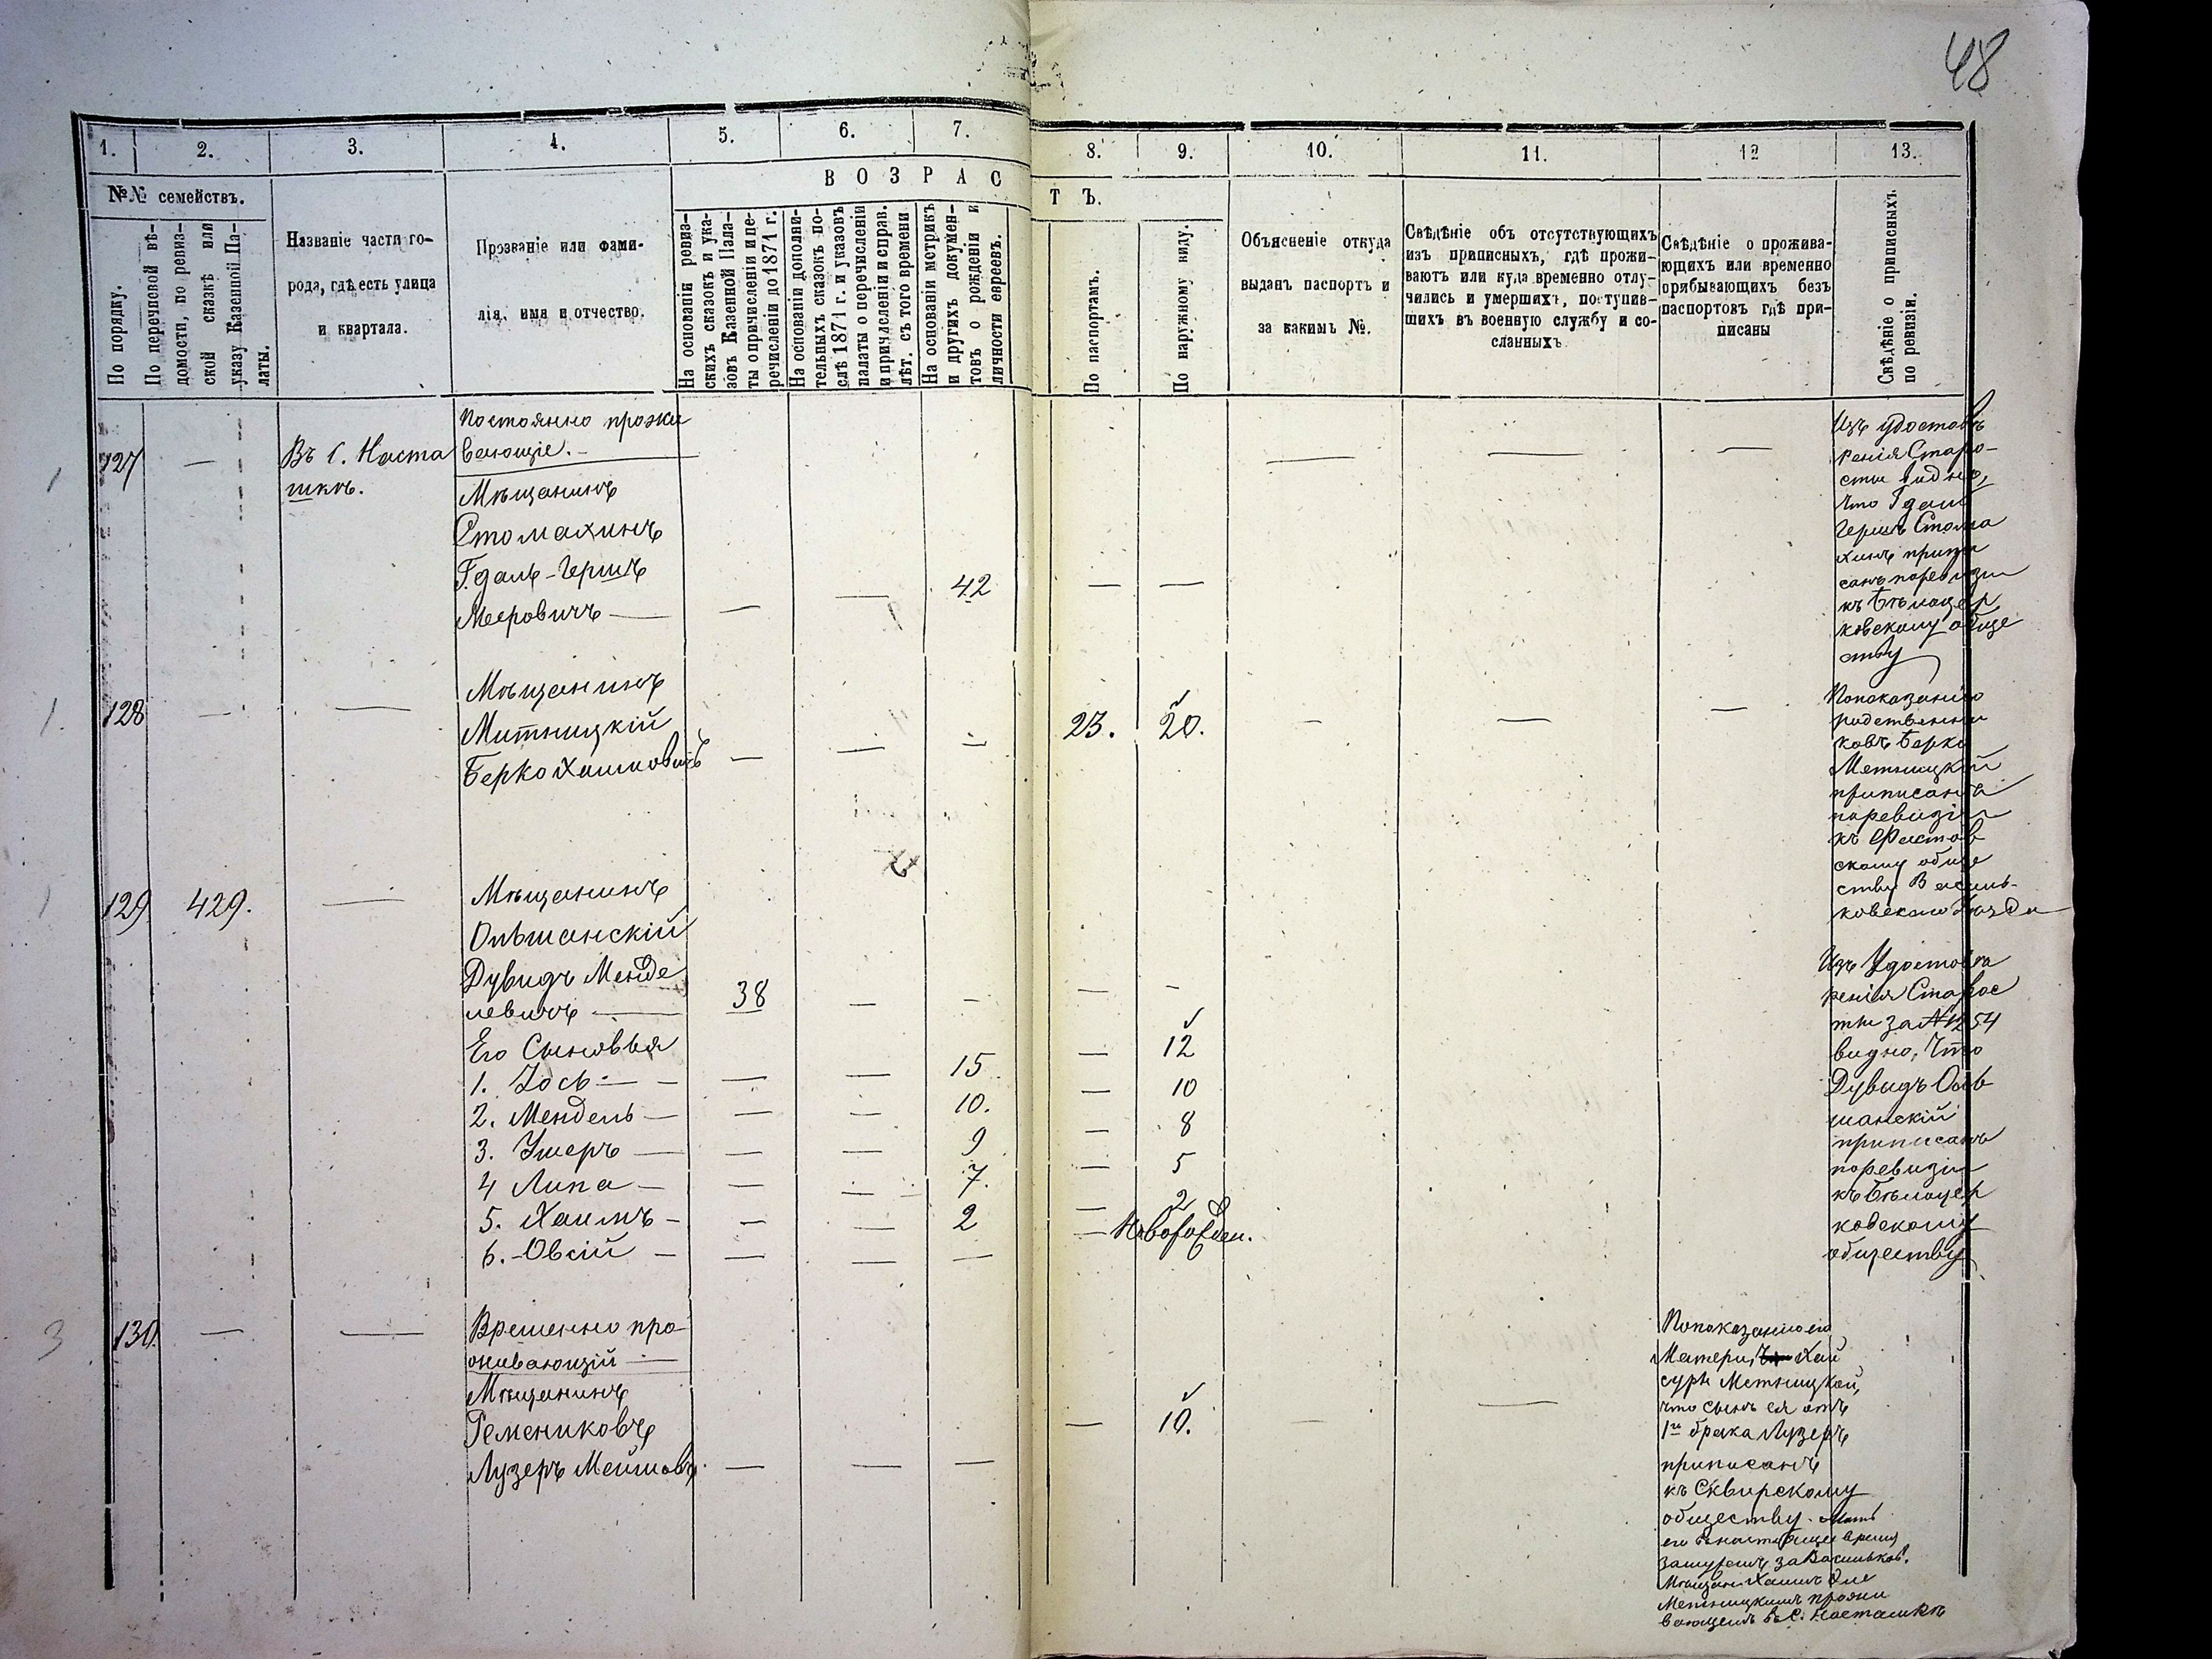 48
1. 2. 3. 4. 5. 6. 7. 8. 9. 10. 11. 12 13.
№№ семействъ.
В О З Р А С Т Ъ.
По порядку.
По перечневой вѣ-
домости, по ревиз-
ской сказкѣ или
указу Казенной Па-
латы.
Названіе части го-
рода, гдѣ есть улица
и квартала.
Прозваніе или фами-
лія, имя и отчество.
На основаніи ревиз-
скихъ сказокъ и ука-
зовъ Казенной Пала-
ты о причисленіи и пе-
речисленіи до 1871 г.
На основаніи дополни-
тельныхъ сказокъ по-
слѣ 1871 г. и указовъ
палаты о перечисленіи
и причисленіи и справ.
лѣт. съ того времени
На основаніи метрикъ
и другихъ докумен-
товъ о рожденіи и
личности евреевъ.
По паспортамъ.
По наружному виду.
Объясненіе откуда
выданъ паспортъ и
за какимъ №.
Свѣдѣніе объ отсутствующихъ
изъ приписныхъ, гдѣ прожи-
ваютъ или куда временно отлу-
чились и умершихъ, поступив-
шихъ въ военную службу и со-
сланныхъ
Свѣдѣніе о прожива-
ющихъ или временно
прибывающихъ безъ
паспортовъ гдѣ при-
писаны
Свѣдѣніе о приписныхъ
по ревизіи.
1
127 —
Въ С. Наста
шкѣ.
Постоянно прожи
вающіе.
Мѣщанинъ
Стомахинъ
Гдаль-Гершъ
Мееровичъ — — — 42 — — — — —
Изъ удостовѣ
ренія Старо-
сты видно,
что Гдаль
Гершъ Стома
хинъ припи
санъ по ревизіи
къ Бѣлоцер
ковскому обще
ству
1. 128 — —
Мѣщанинъ
Митницкій
Берко Хаимовичъ — — — 23. 20. — — —
По показанію
родственни
ковъ Берко
Метницкій
приписанъ
по ревизіи
къ Фастов
скому обще
ству Василь-
ковскаго Уѣзда
1 129 429. —
Мѣщанинъ
Ольшанскій
Дувидъ Менде
левичъ — 38 — — — —
Его Сыновья
1. Іось — — — 15 — 12
2. Мендель — — — 10. — 10
3. Ушеръ — — — 9 — 8
4 Липа — — — 7. — 5
5. Хаимъ — — — 2 — 2
6. Овсій — — — — — Новорожден.
Изъ Удостовѣ
ренія Старос
ты за №1254
видно, что
Дувидъ Оль
шанскій
приписанъ
по ревизіи
къ Бѣлоцер
ковскому
обществу
3 130. — —
Временно про
живающій —
Мѣщанинъ
Ремениковъ
Лузеръ — — — — 10. — —
По показанію его
Матери, Хаи
суры Метницкой,
что сынъ ея отъ
1го брака Лузеръ
приписанъ
къ Сквирскому
обществу. Мать
его въ настоящее время
замужемъ за Васильков.
Мѣщан. Хаимъ
Метницкимъ прожи
вающемъ въ С. Насташкѣ